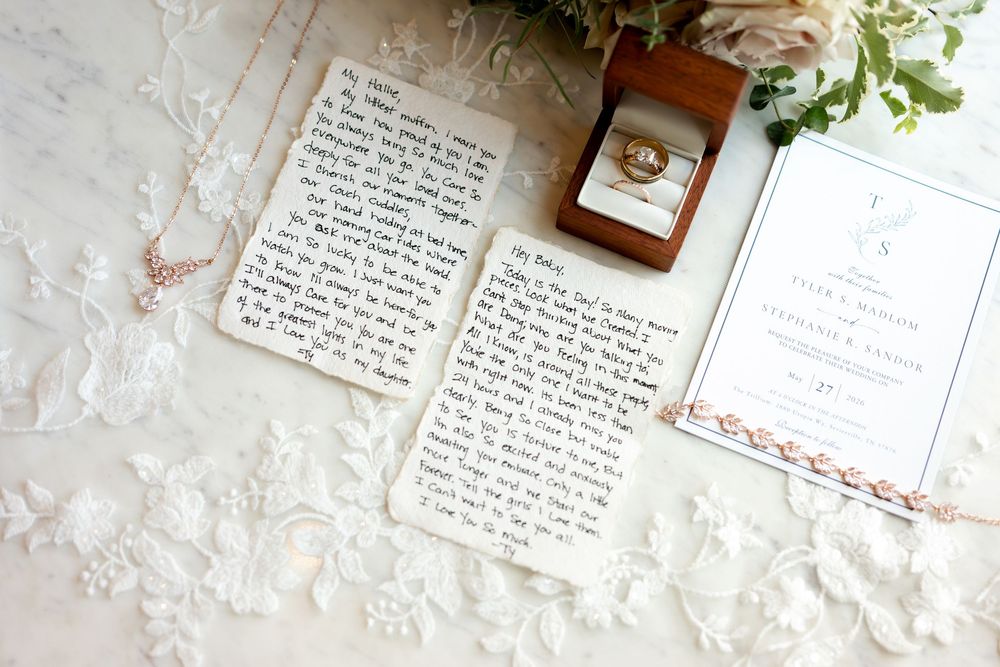 My Hallie,
My littlest muffin. I want you
to know how proud of you I am.
You always bring so much love
everywhere you go. You care so
deeply for all your loved ones.
I cherish our moments together
our couch cuddles,
our hand holding at bed time,
our morning car rides where
You ask me about the World.
I am so lucky to be able to
watch you grow. I just want you
to know I'll always be here for you
I'll always care for you and be
there to protect you. You are one
of the greatest lights in my life
and I love you as my daughter.
-Ty
Hey Baby,
Today is the Day! So Many moving
pieces. Look what we created. I
can't stop thinking about what you
are Doing, who are you talking to,
what are you feeling in this moment
All I know, is around all these people,
You're the only one I want to be
with right now. Its been less than
24 hours and I already miss you
dearly. Being so close but unable
to see you is torture to me, But
I'm also so excited and anxiously
awaiting your embrace. Only a little
more longer and we start our
Forever. Tell the girls I love them.
I can't want to see you all.
I love you so much.
-Ty
T
S
Together
with their families
TYLER S. MADLOM
and
STEPHANIE R. SANDOR
REQUEST THE PLEASURE OF YOUR COMPANY
TO CELEBRATE THEIR WEDDING ON
May | 27 | 2026
AT O'CLOCK IN THE AFTERNOON
The Trillium
Sevierville, TN
Reception to follow